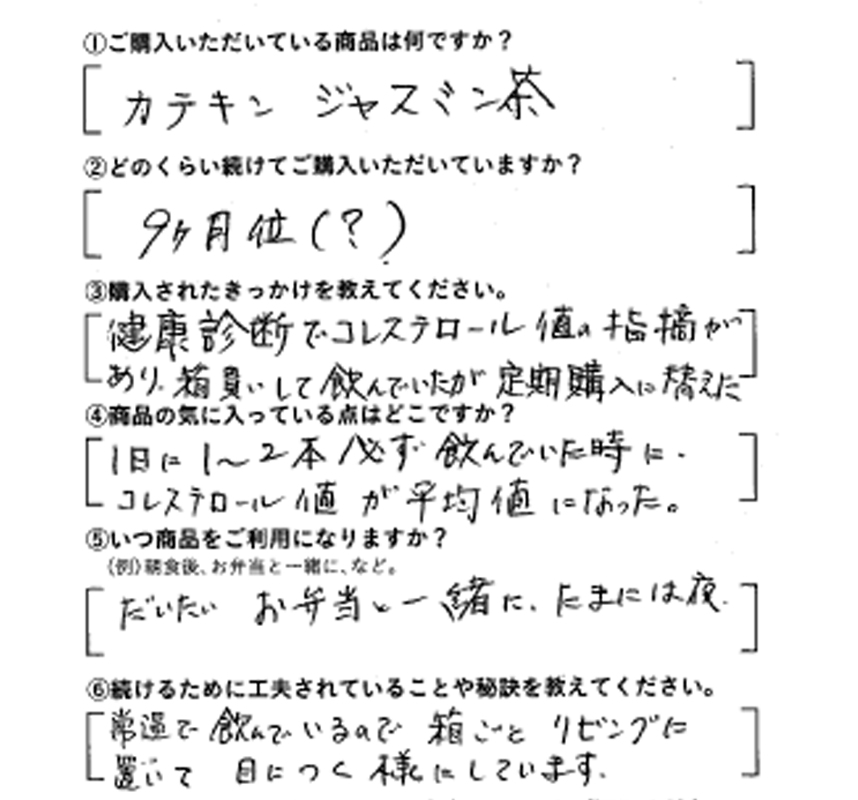 ①ご購入いただいている商品は何ですか？
カテキン ジャスミン茶
②どのくらい続けてご購入いただいていますか？
9ヶ月位(？)
③購入されたきっかけを教えてください。
健康診断でコレステロール値の指摘が
あり、箱買いして飲んでいたが定期購入に替えた
④商品の気に入っている点はどこですか？
1日に1～2本必ず飲んでいた時に、
コレステロール値が平均値になった。
⑤いつ商品をご利用になりますか？
(例)朝食後、お弁当と一緒に、など。
だいたい お弁当と一緒に、たまには夜.
⑥続けるために工夫されていることや秘訣を教えてください。
常温で飲んでいるので 箱ごと リビングに
置いて 目につく様にしています.